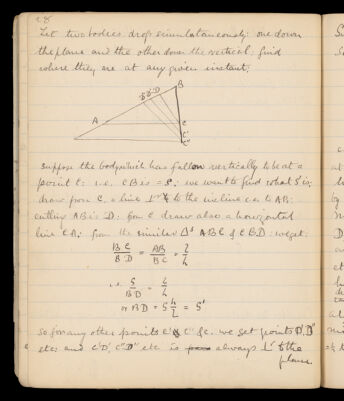 28
Let two bodies drop simultaneously: one down
the plane and the other down the vertical: find
where they are at any given instant:
B
D'' D' D
A
C
C'
C''
suppose the body which has fallen vertically to be at a
point C: i.e. CB is = S: we want to find what S' is:
draw from C a line ⊥r to the incline i.e. to AB:
cutting AB in D: from C draw also a horizontal
line CA: from the similar Δs ABC & CBD: we get:
BC/BD = AB/BC = L/h
i.e. S/BD = L/h
or BD = S h/L = S'
so for any other points C' & C'' &c. we get points D', D''
etc: and C'D', C''D'' etc is always ⊥r to the
plane